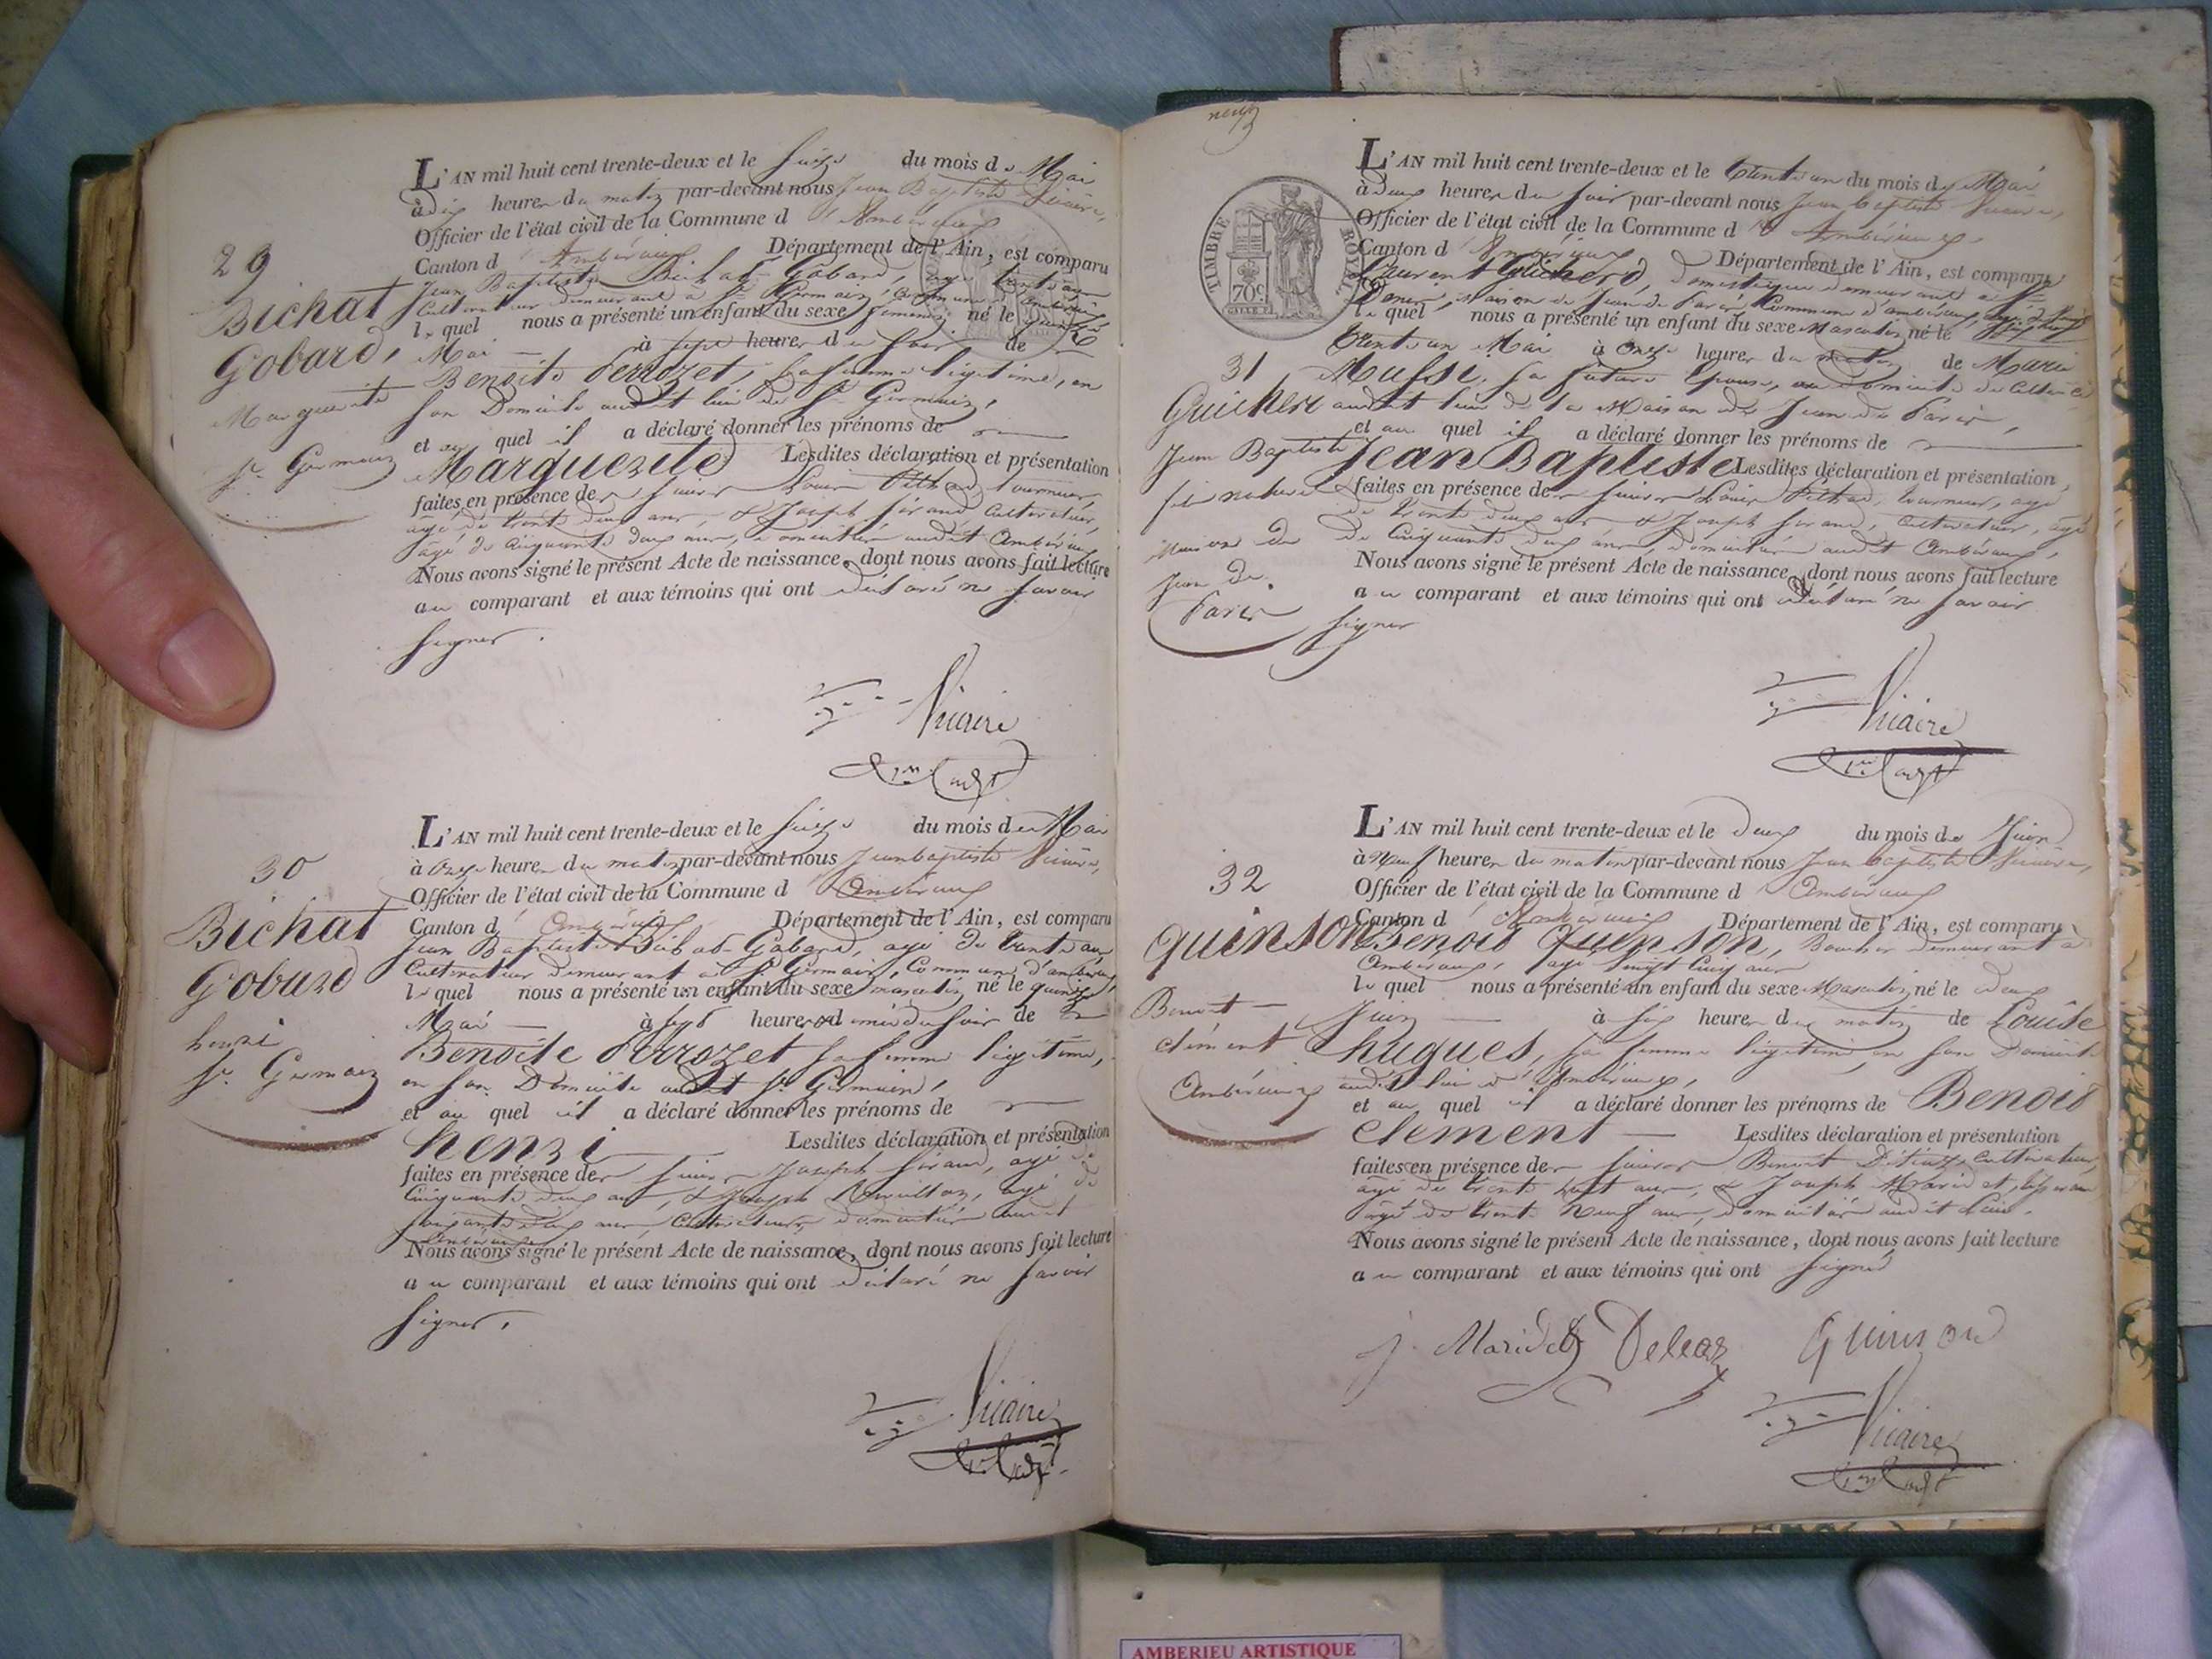 29
Bichat
Gobard,
Marguerite
St. Germain
L'AN mil huit cent trente-deux et le seize du mois de Mai
à dix heures du matin par-devant nous Jean Baptiste Vicaire,
Officier de l'état civil de la Commune d'Ambérieux
Canton d'Ambérieux Département de l'Ain, est comparu
Jean Baptiste Bichat Gobard, agé de trente ans
Cultivateur demeurant à St. Germain, Commune d'ambérieux
lequel nous a présenté un enfant du sexe feminin né le quinze
Mai — à sept heures du soir de
Benoite Perrozet, sa femme légitime, en
son Domicile audit lieu de St. Germain,
et auquel il a déclaré donner les prénoms de
Marguerite Lesdites déclaration et présentation
faites en présence des sieurs Louis tourneur,
âgé de trente deux ans, & Joseph Sirand Cultivateur,
âgé de Cinquante deux ans, domiciliés audit Ambérieux
Nous avons signé le présent Acte de naissance, dont nous avons fait lecture
au comparant et aux témoins qui ont déclaré ne savoir
signer.
Vicaire
30
Bichat
Gobard
henri
St. Germain
L'AN mil huit cent trente-deux et le seize du mois de Mai
à onze heures du matin par-devant nous Jean baptiste Vicaire,
Officier de l'état civil de la Commune d'Ambérieux
Canton d'Ambérieux Département de l'Ain, est comparu
Jean Baptiste Bichat Gobard, agé de trente ans,
Cultivateur demeurant à St. Germain, Commune d'ambérieux,
lequel nous a présenté un enfant du sexe masculin né le quinze
Mai — à sept heures et demie du soir de
Benoite Perrozet sa femme légitime,
en son Domicile audit St. Germain,
et auquel il a déclaré donner les prénoms de
henri Lesdites déclaration et présentation
faites en présence des sieurs Joseph Sirand, agé de
Cinquante deux ans, & Joseph agé de
soixante deux ans, Cultivateurs domiciliés audit
Ambérieux
Nous avons signé le présent Acte de naissance, dont nous avons fait lecture
au comparant et aux témoins qui ont déclaré ne savoir
signer.
Vicaire
neuf
TIMBRE ROYAL
70c
31
Guichert
Jean Baptiste
fils naturel
Maison de
Jean de
Paris
L'AN mil huit cent trente-deux et le trente un du mois de Mai
à deux heures du soir par-devant nous Jean baptiste Vicaire,
Officier de l'état civil de la Commune d'Ambérieux
Canton d'Ambérieux Département de l'Ain, est comparu
Laurent Guicherd, domestique demeurant a
maison de Jean de Paris Commune d'ambérieux,
lequel nous a présenté un enfant du sexe Masculin né le
trente un Mai à onze heures du matin de Marie
Mussi, sa future Epouse, au domicile de
audit lieu de la Maison de Jean de Paris,
et auquel il a déclaré donner les prénoms de
Jean Baptiste Lesdites déclaration et présentation
faites en présence des sieurs Louis tourneur, agé
de trente deux ans & Joseph Sirand, Cultivateur, âgé
de Cinquante deux ans, domiciliés audit Ambérieux,
Nous avons signé le présent Acte de naissance, dont nous avons fait lecture
au comparant et aux témoins qui ont déclaré ne savoir
signer
Vicaire
32
quinson
Benoit
clément
Ambérieux
L'AN mil huit cent trente-deux et le deux du mois de Juin
à Neuf heures du matin par-devant nous Jean baptiste Vicaire,
Officier de l'état civil de la Commune d'Ambérieux
Canton d'Ambérieux Département de l'Ain, est comparu
Benoit Quinson, Boucher demeurant à
Ambérieux, agé Vingt Cinq ans
lequel nous a présenté un enfant du sexe Masculin né le deux
Juin — à six heures du matin de Louise
hugues, sa femme légitime en son Domicile
audit lieu d'Ambérieux,
et auquel il a déclaré donner les prénoms de Benoit
Clement — Lesdites déclaration et présentation
faites en présence des sieurs Benoit Cultivateur,
âgé de trente huit ans, & Joseph Maridet,
âgé de trente Neuf ans, domiciliés audit lieu.
Nous avons signé le présent Acte de naissance, dont nous avons fait lecture
au comparant et aux témoins qui ont signé
j. Maridet Quinson
Vicaire
AMBERIEU ARTISTIQUE